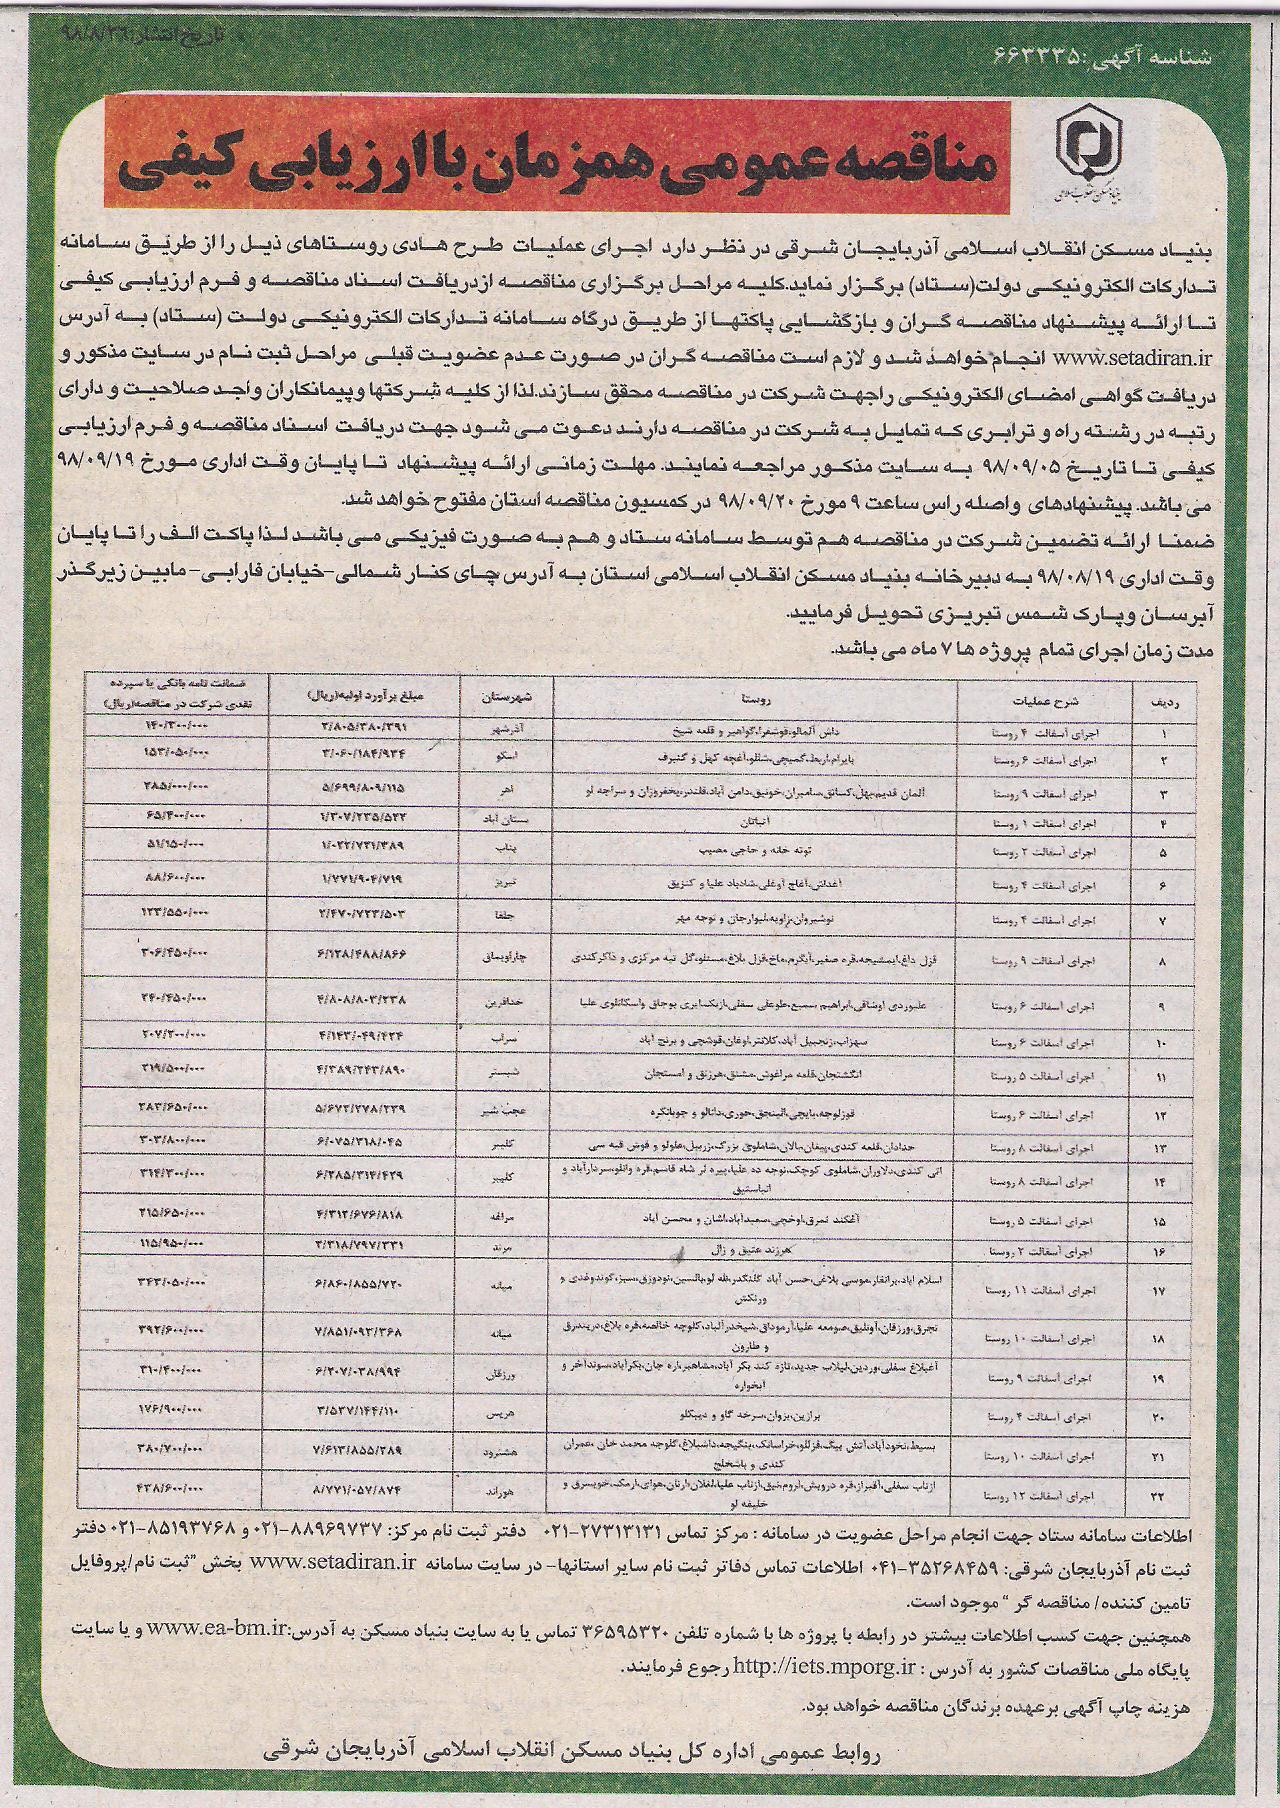 تاریخ انتشار: ۹۸/۸/۲۶
شناسه آگهی: ۶۶۳۳۳۵
مناقصه عمومی همزمان با ارزیابی کیفی
بنیاد مسکن انقلاب اسلامی
بنیاد مسکن انقلاب اسلامی آذربایجان شرقی در نظر دارد اجرای عملیات طرح هادی روستاهای ذیل را از طریق سامانه
تدارکات الکترونیکی دولت(ستاد) برگزار نماید.کلیه مراحل برگزاری مناقصه ازدریافت اسناد مناقصه و فرم ارزیابی کیفی
تا ارائه پیشنهاد مناقصه گران و بازگشایی پاکتها از طریق درگاه سامانه تدارکات الکترونیکی دولت (ستاد) به آدرس
www.setadiran.ir انجام خواهد شد و لازم است مناقصه گران در صورت عدم عضویت قبلی مراحل ثبت نام در سایت مذکور و
دریافت گواهی امضای الکترونیکی راجهت شرکت در مناقصه محقق سازند.لذا از کلیه شرکتها وپیمانکاران واجد صلاحیت و دارای
رتبه در رشته راه و ترابری که تمایل به شرکت در مناقصه دارند دعوت می شود جهت دریافت اسناد مناقصه و فرم ارزیابی
کیفی تا تاریخ ۹۸/۰۹/۰۵ به سایت مذکور مراجعه نمایند. مهلت زمانی ارائه پیشنهاد تا پایان وقت اداری مورخ ۹۸/۰۹/۱۹
می باشد. پیشنهادهای واصله راس ساعت ۹ مورخ ۹۸/۰۹/۲۰ در کمسیون مناقصه استان مفتوح خواهد شد.
ضمنا ارائه تضمین شرکت در مناقصه هم توسط سامانه ستاد و هم به صورت فیزیکی می باشد لذا پاکت الف را تا پایان
وقت اداری ۹۸/۰۸/۱۹ به دبیرخانه بنیاد مسکن انقلاب اسلامی استان به آدرس چای کنار شمالی-خیابان فارابی- مابین زیرگذر
آبرسان وپارک شمس تبریزی تحویل فرمایید.
مدت زمان اجرای تمام پروژه ها ۷ ماه می باشد.
ردیف شرح عملیات روستا شهرستان مبلغ برآورد اولیه(ریال) ضمانت نامه بانکی یا سپرده نقدی شرکت در مناقصه(ریال)
۱ اجرای آسفالت ۴ روستا داش آلمالو،قوشقرا،گواهیر و قلعه شیخ آذرشهر ۲/۸۰۵/۳۸۰/۳۹۱ ۱۴۰/۳۰۰/۰۰۰
۲ اجرای آسفالت ۶ روستا بایرام،اربط،گمیچی،شللو،آغچه کهل و گنبرف اسکو ۳/۰۶۰/۱۸۴/۹۳۴ ۱۵۳/۰۵۰/۰۰۰
۳ اجرای آسفالت ۹ روستا آلمان قدیم،بهل،کسانق،سامبران،خونیق،دامن آباد،قلندر،یخفروزان و سراجه لو اهر ۵/۶۹۹/۸۰۹/۱۱۵ ۲۸۵/۰۰۰/۰۰۰
۴ اجرای آسفالت ۱ روستا بستان آباد ۱/۳۰۷/۲۳۵/۵۲۲ ۶۵/۴۰۰/۰۰۰
۵ اجرای آسفالت ۲ روستا توته خانه و حاجی مصیب بناب ۱/۰۲۲/۷۳۱/۳۸۹ ۵۱/۱۵۰/۰۰۰
۶ اجرای آسفالت ۴ روستا آغداش،آغاج اوغلی،شادباد علیا و کنزیق تبریز ۱/۷۷۱/۹۰۴/۷۱۹ ۸۸/۶۰۰/۰۰۰
۷ اجرای آسفالت ۴ روستا نوشیروان،زاویه،لیوارجان و نوجه مهر جلفا ۲/۴۷۰/۷۲۳/۵۰۳ ۱۲۳/۵۵۰/۰۰۰
۸ اجرای آسفالت ۹ روستا قزل داغ،ایمشیجه،قره صفیر،آبگرم،ماخ،قزل بلاغ،مستلو،گل تپه مرکزی و ذاکرکندی چاراویماق ۶/۱۲۸/۴۸۸/۸۶۶ ۳۰۶/۴۵۰/۰۰۰
۹ اجرای آسفالت ۶ روستا خدافرین ۴/۸۰۸/۸۰۳/۲۳۸ ۲۴۰/۴۵۰/۰۰۰
۱۰ اجرای آسفالت ۶ روستا سهزاب،زنجبیل آباد،کلانتر،اوغان،قوشچی و برنج آباد سراب ۴/۱۴۳/۰۴۹/۴۲۴ ۲۰۷/۲۰۰/۰۰۰
۱۱ اجرای آسفالت ۵ روستا انگشتجان،قلعه مراغوش،مشنق،هرزنق و امستجان شبستر ۴/۳۸۹/۲۴۳/۸۹۰ ۲۱۹/۵۰۰/۰۰۰
۱۲ اجرای آسفالت ۶ روستا قوزلوجه،بایچی،الینجق،خوری،دانالو و جوبانکره عجب شیر ۵/۶۷۲/۲۷۸/۲۳۹ ۲۸۳/۶۵۰/۰۰۰
۱۳ اجرای آسفالت ۸ روستا حدادان،قلعه کندی،پیغان،بالان،شاملوی بزرگ،زربیل،علولو و قوش قیه سی کلیبر ۶/۰۷۵/۳۱۸/۰۴۵ ۳۰۳/۸۰۰/۰۰۰
۱۴ اجرای آسفالت ۸ روستا کلیبر ۶/۲۸۵/۳۱۴/۴۲۹ ۳۱۴/۳۰۰/۰۰۰
۱۵ اجرای آسفالت ۵ روستا آغکند نمرق،اوخچی،سعیدآباد،اشان و محسن آباد مراغه ۴/۳۱۲/۶۷۶/۸۱۸ ۲۱۵/۶۵۰/۰۰۰
۱۶ اجرای آسفالت ۲ روستا هرزند عتیق و زال مرند ۲/۳۱۸/۷۹۷/۳۳۱ ۱۱۵/۹۵۰/۰۰۰
۱۷ اجرای آسفالت ۱۱ روستا میانه ۶/۸۶۰/۸۵۵/۷۲۰ ۳۴۳/۰۵۰/۰۰۰
۱۸ اجرای آسفالت ۱۰ روستا میانه ۷/۸۵۱/۰۹۳/۳۶۸ ۳۹۲/۶۰۰/۰۰۰
۱۹ اجرای آسفالت ۹ روستا ورزقان ۶/۲۰۷/۰۳۸/۹۹۴ ۳۱۰/۴۰۰/۰۰۰
۲۰ اجرای آسفالت ۴ روستا برازین،بزوان،سرخه گاو و دیبکلو هریس ۳/۵۳۷/۱۴۴/۱۱۰ ۱۷۶/۹۰۰/۰۰۰
۲۱ اجرای آسفالت ۱۰ روستا هشترود ۷/۶۱۳/۸۵۵/۲۸۹ ۳۸۰/۷۰۰/۰۰۰
۲۲ اجرای آسفالت ۱۲ روستا هوراند ۸/۷۷۱/۰۵۷/۸۷۴ ۴۳۸/۶۰۰/۰۰۰
اطلاعات سامانه ستاد جهت انجام مراحل عضویت در سامانه : مرکز تماس ۲۷۳۱۳۱۳۱-۰۲۱ دفتر ثبت نام مرکز: ۸۸۹۶۹۷۳۷-۰۲۱ و ۸۵۱۹۳۷۶۸-۰۲۱ دفتر
ثبت نام آذربایجان شرقی: ۳۵۲۶۸۴۵۹-۰۴۱ اطلاعات تماس دفاتر ثبت نام سایر استانها- در سایت سامانه www.setadiran.ir بخش "ثبت نام/پروفایل
تامین کننده/ مناقصه گر " موجود است.
همچنین جهت کسب اطلاعات بیشتر در رابطه با پروژه ها با شماره تلفن ۳۶۵۹۵۳۲۰ تماس یا به سایت بنیاد مسکن به آدرس:www.ea-bm.ir و یا سایت
پایگاه ملی مناقصات کشور به آدرس : http://iets.mporg.ir رجوع فرمایند.
هزینه چاپ آگهی برعهده برندگان مناقصه خواهد بود.
روابط عمومی اداره کل بنیاد مسکن انقلاب اسلامی آذربایجان شرقی